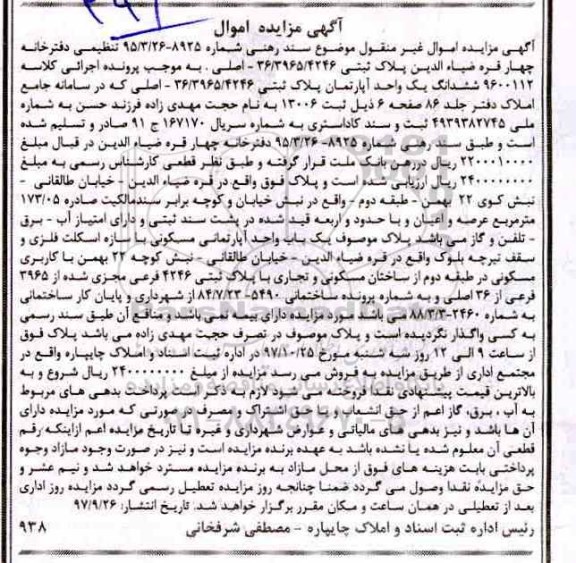 ۳۹۱
آگهی مزایده اموال
آگهی مزایده اموال غیر منقول موضوع سند رهنی شماره ۸۹۲۵-۹۵/۳/۲۶ تنظیمی دفترخانه
چهار قره ضیاء الدین پلاک ثبتی ۳۶/۳۹۶۵/۴۲۴۶ - اصلی . به موجب پرونده اجرائی کلاسه
۹۶۰۰۱۱۲ ششدانگ یک واحد آپارتمان پلاک ثبتی ۳۶/۳۹۶۵/۴۲۴۶ - اصلی که در سامانه جامع
املاک دفتر جلد ۸۶ صفحه ۶ ذیل ثبت ۱۳۰۰۶ به نام حجت مهدی زاده فرزند حسن به شماره
ملی ۴۹۳۹۳۸۲۷۴۵ ثبت و سند کاداستری به شماره سریال ۱۶۷۱۷۰ ج ۹۱ صادر و تسلیم شده
است و طبق سند رهنی شماره ۸۹۲۵- ۹۵/۳/۲۶ دفترخانه چهار قره ضیاء الدین در قبال مبلغ
۲۲۰۰۰۱۰۰۰۰ ریال دررهن بانک ملت قرار گرفته و طبق نظر قطعی کارشناس رسمی به مبلغ
۲۴۰۰۰۰۰۰۰۰ ریال ارزیابی شده است و پلاک فوق واقع در قره ضیاء الدین - خیابان طالقانی -
نبش کوی ۲۲ بهمن - طبقه دوم - واقع در نبش خیابان و کوچه برابر سندمالکیت صادره ۱۷۳/۰۵
مترمربع عرصه و اعیان و با حدود و اربعه قید شده در پشت سند ثبتی و دارای امتیاز آب - برق
- تلفن و گاز می باشد پلاک موصوف یک باب واحد آپارتمانی مسکونی با سازه اسکلت فلزی و
سقف تیرچه بلوک واقع در قره ضیاء الدین - خیابان طالقانی - نبش کوچه ۲۲ بهمن با کاربری
مسکونی در طبقه دوم از ساختان مسکونی و تجاری با پلاک ثبتی ۴۲۴۶ فرعی مجزی شده از ۳۹۶۵
فرعی از ۳۶ اصلی و به شماره پرونده ساختمانی ۵۴۹۰-۸۴/۷/۲۳ از شهرداری و پایان کار ساختمانی
به شماره ۲۴۶۰-۸۸/۳/۳ می باشد. مورد مزایده دارای سند رسمی می باشد و منافع آن طبق سند رسمی
به کسی واگذار نگردیده است و پلاک موصوف در تصرف حجت مهدی زاده می باشد پلاک فوق
از ساعت ۹ الی ۱۲ روز سه شنبه مورخ ۹۷/۱۰/۲۵ در اداره ثبت اسناد و املاک چایپاره واقع در
مجتمع اداری از طریق مزایده به فروش می رسد مزایده از مبلغ ۲۴۰۰۰۰۰۰۰۰ ریال شروع و به
بالاترین قیمت پیشنهادی نقدا فروخته می شود لازم به ذکر است پرداخت بدهی های مربوط
به آب ، برق، گاز اعم از حق انشعاب و یا حق اشتراک و مصرف در صورتی که مورد مزایده دارای
آن ها باشد و نیز بدهی های مالیاتی و عوارض شهرداری و غیره تا تاریخ مزایده اعم ازاینکه رقم
قطعی آن معلوم شده یا نشده باشد به عهده برنده مزایده است و نیز در صورت وجود مازاد وجوه
پرداختی بابت هزینه های فوق از محل مازاد به برنده مزایده مسترد خواهد شد و نیم عشر و
حق مزایده نقدا وصول می گردد ضمنا چنانچه روز مزایده تعطیل رسمی گردد مزایده روز اداری
بعد از تعطیلی در همان ساعت و مکان مقرر برگزار خواهد شد. تاریخ انتشار: ۹۷/۹/۲۶
رئیس اداره ثبت اسناد و املاک چایپاره - مصطفی شرفخانی ۹۳۸